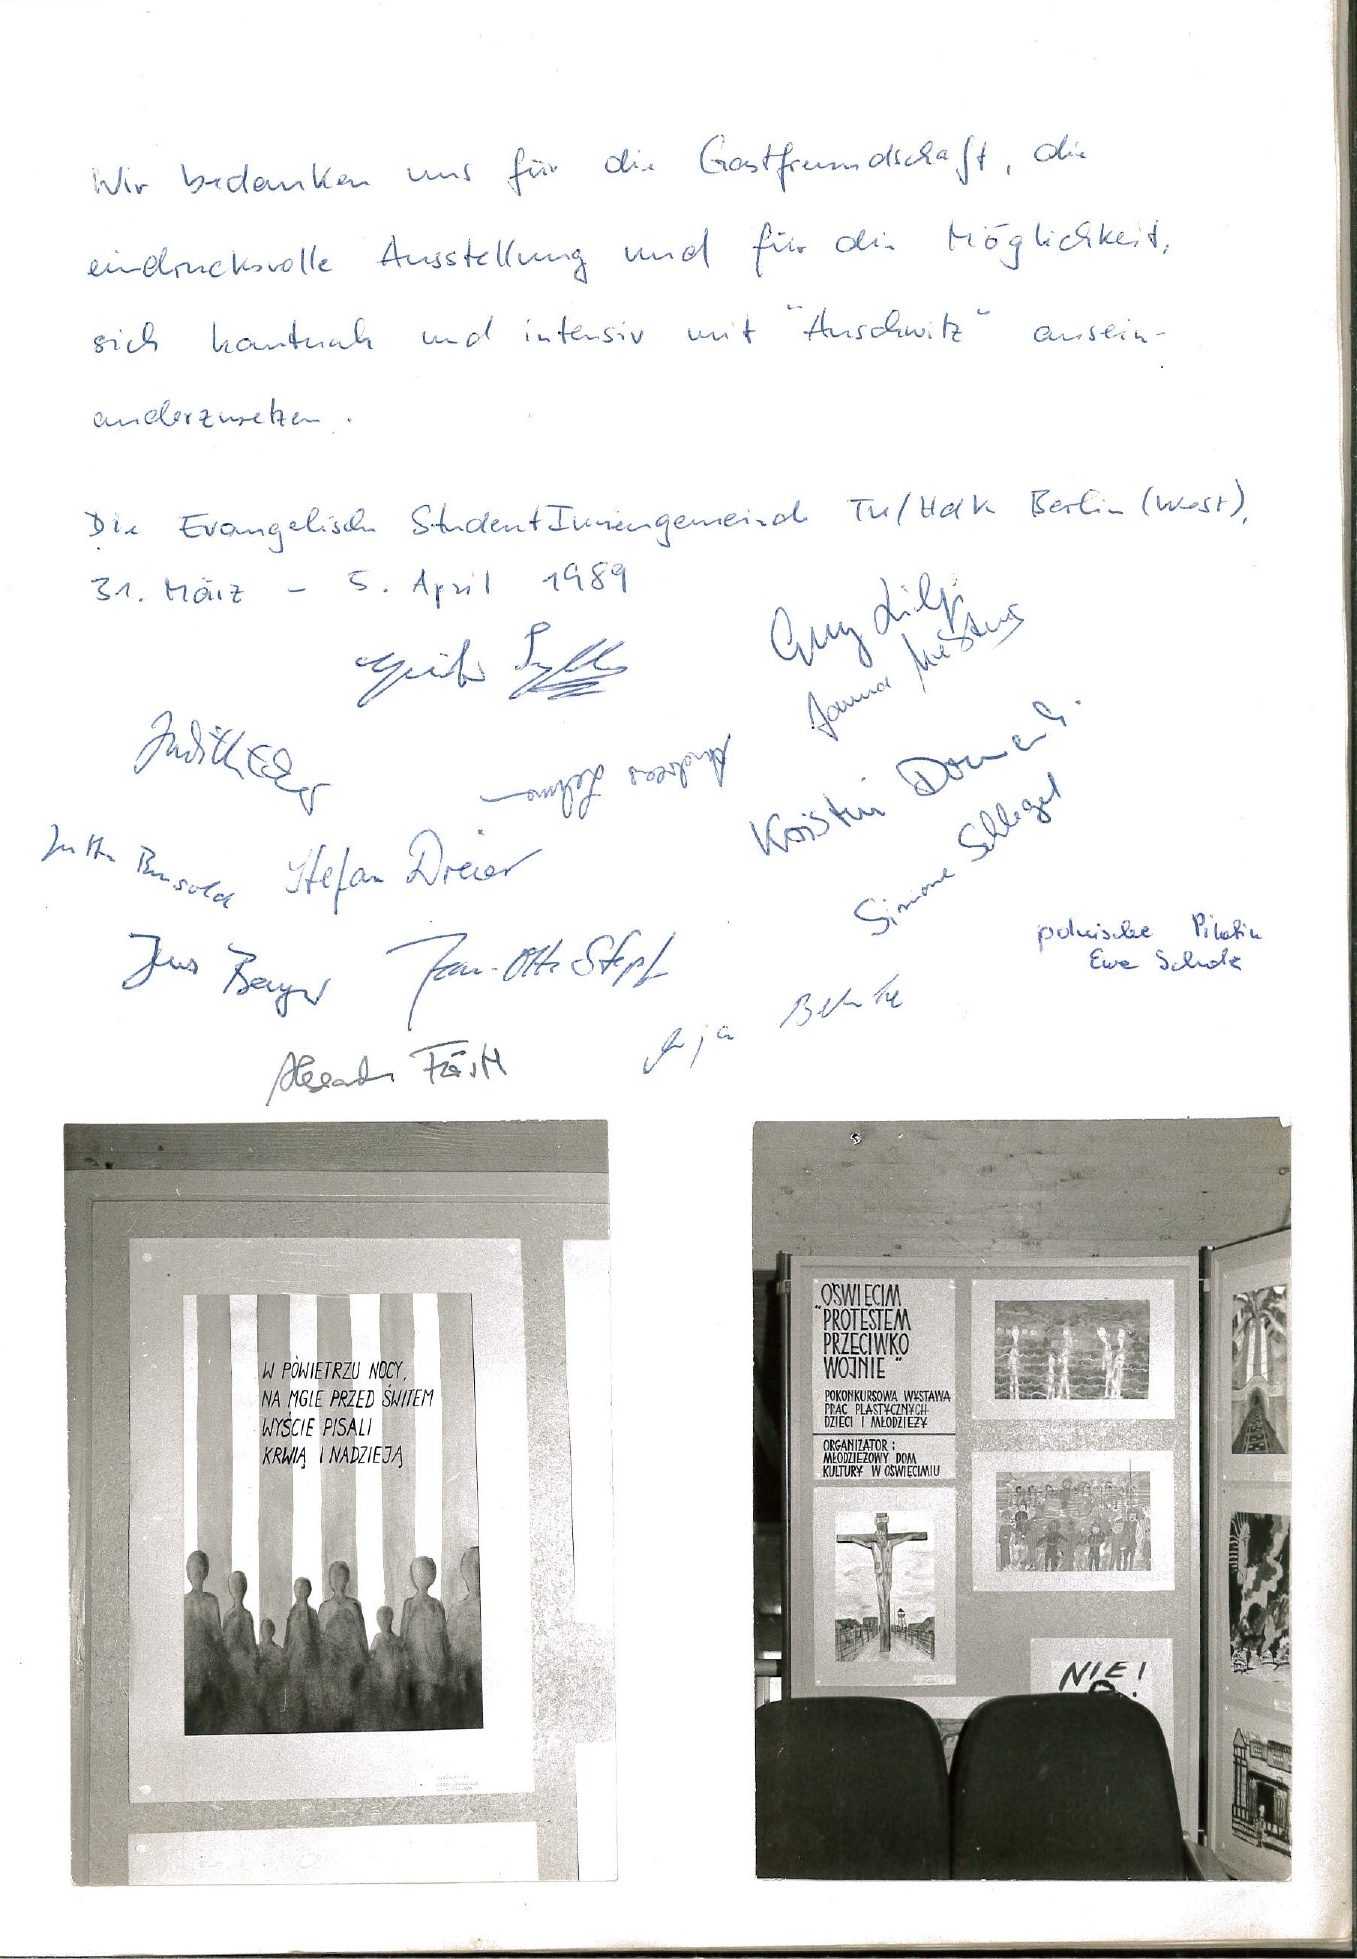 Wir bedanken uns für die Gastfreundschaft, die
eindrucksvolle Ausstellung und für die Möglichkeit,
sich konkret und intensiv mit "Auschwitz" ausein-
anderzusetzen.
Die Evangelische StudentInnengemeinde TU/HdK Berlin (West),
31. März – 5. April 1989
Judith
Andreas
Kristin
Simone Schlegel
Stefan Dreier
Jens Berger
Jan-Otto
polnische Pilotin
Ewa Scholz
Anja
W POWIETRZU NOCY,
NA MGLE PRZED ŚWITEM
WYŚCIE PISALI
KRWIĄ I NADZIEJĄ
OŚWIĘCIM
"PROTESTEM
PRZECIWKO
WOJNIE"
POKONKURSOWA WYSTAWA
PRAC PLASTYCZNYCH
DZIECI I MŁODZIEŻY
ORGANIZATOR:
MŁODZIEŻOWY DOM
KULTURY W OŚWIĘCIMIU
NIE!